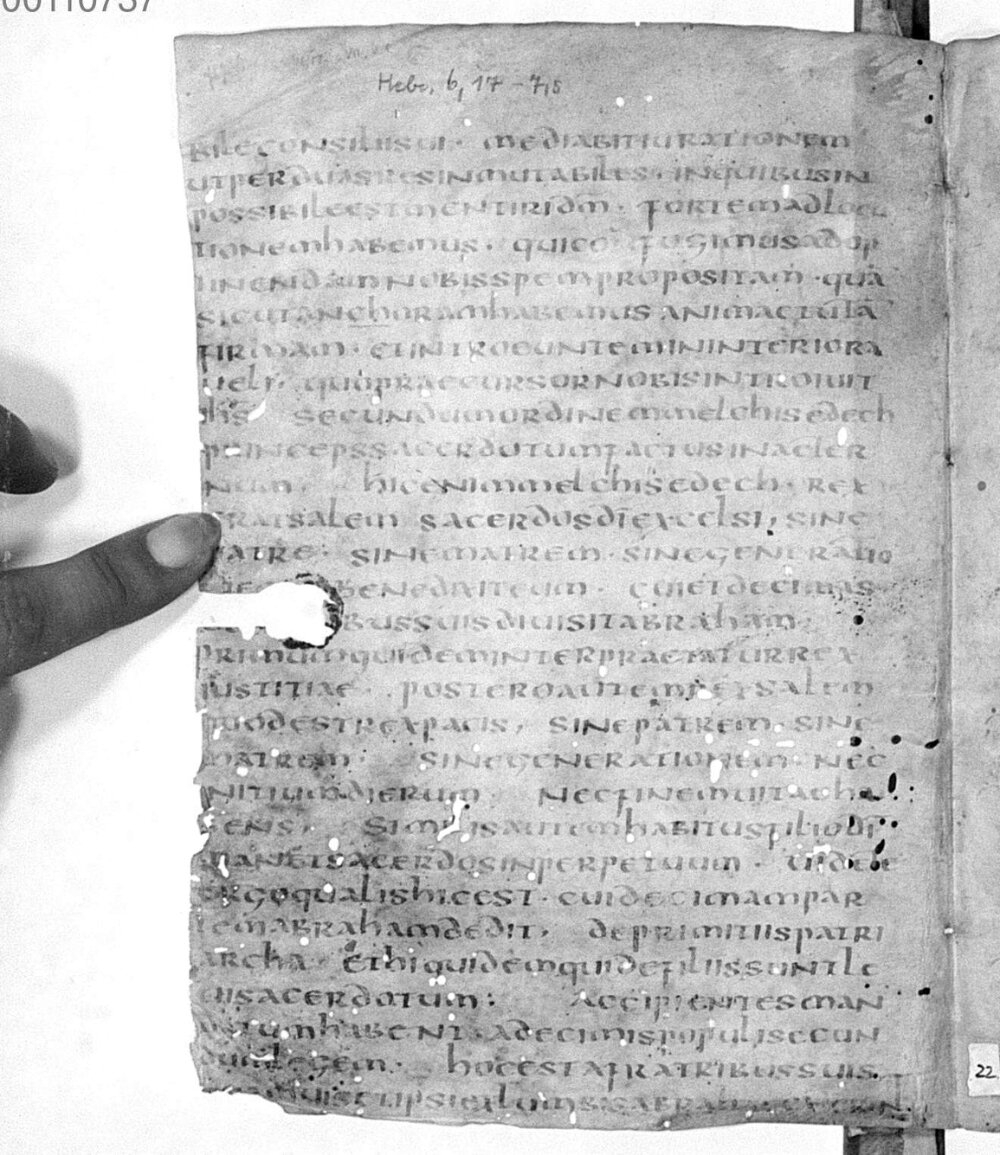 00110737
Hebr. 6, 17 – 7,5
BILECONSILIISUI· MEDIABITIURATIONEM
UTPERDUASRESINMUTABILES· INQUIBUSIN
POSSIBILEESTMENTIRIDM̄· FORTEMADLOCU
TIONEMHABEMUS· QUICO FUGIMUSADOP
TINENDAMNOBISSPEMPROPOSITAM·QUĀ
SICUTANCHORAMHABEMUSANIMAETUTĀ
FIRMAM· ETINTROEUNTEMININTERIORA
UELI· QUOPRAECURSORNOBISINTROIUIT
IHS̄ SECUNDUMORDINEMMELCHISEDECH
PRINCEPSSACERDOTUMFACTUSINAETER
NUM· HICENIMMELCHISEDECH· REX
ERATSALEM SACERDOSDĪEXCELSI, SINE
PATRE· SINEMATREM·SINEGENERATIO
BENEDIXITEUM· CUIETDECIMAS
BUSSUISDIUISITABRAHAM·
PRIMUMQUIDEMINTERPRAETATURREX
IUSTITIAE· POSTEROAUTEMREXSALEM
QUODESTREXPACIS, SINEPATREM·SINE
MATREM· SINEGENERATIONEM·NEC
INITIUMDIERUM, NECFINEMUITAEHA
BENS, SIMILISAUTEMHABITUSFILIODĪ
MANETSACERDOSINPERPETUUM· UIDETE
ERGOQUALISHICEST· CUIDECIMAMPAR
TEMABRAHAMDEDIT, DEPRIMITIISPATRI
ARCHA· ETHIQUIDEMQUIDEFILIISSUNTLE
UISACERDOTUM: ACCIPIENTESMAN
DATUMHABENT·ADECIMISPOPULISECUN
DUMLEGEM· HOCESTAFRATRIBUSSUIS.
22